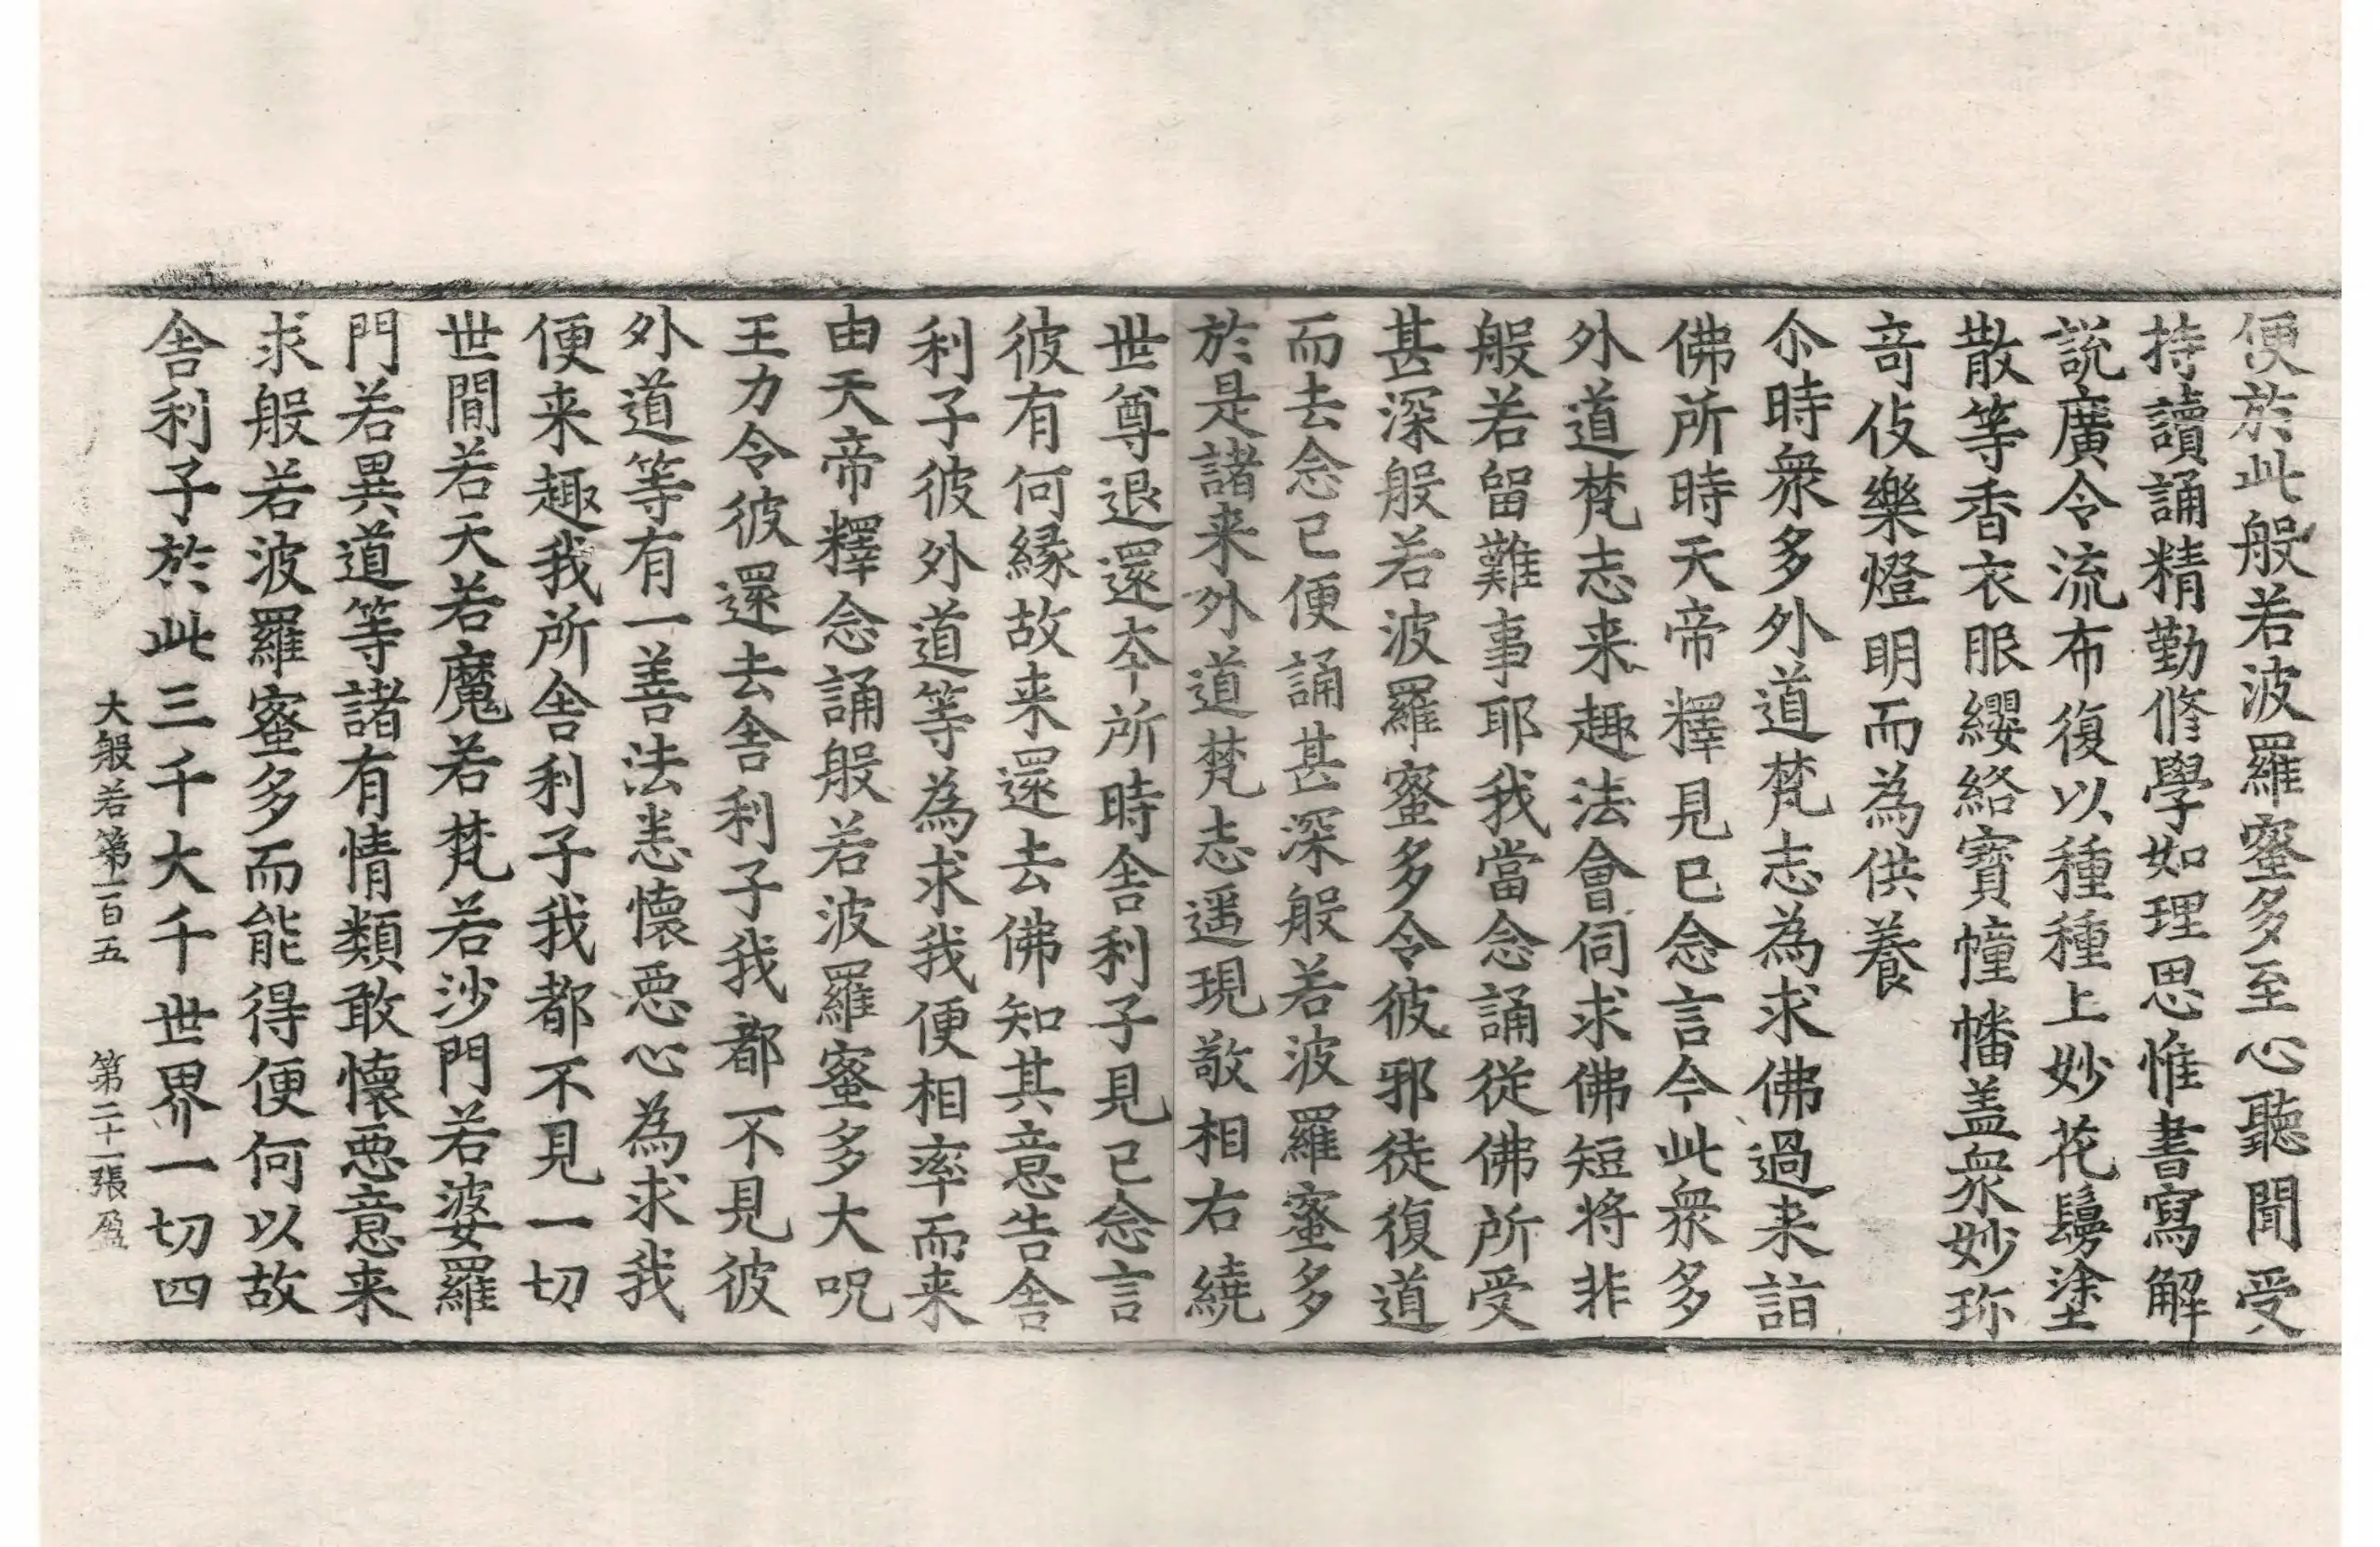 便於此般若波羅蜜多至心聽聞受
持讀誦精勤修學如理思惟書寫解
說廣令流布復以種種上妙花鬘塗
散等香衣服纓絡寶幢幡盖衆妙珎
竒伎樂燈明而為供養
尒時衆多外道梵志為求佛過来詣
佛所時天帝釋見已念言今此衆多
外道梵志来趣法會伺求佛短將非
般若留難事耶我當念誦從佛所受
甚深般若波羅蜜多令彼邪徒復道
而去念已便誦甚深般若波羅蜜多
於是諸来外道梵志遥現敬相右繞
世尊退還夲所時舎利子見已念言
彼有何縁故来還去佛知其意告舎
利子彼外道等為求我便相率而来
由天帝釋念誦般若波羅蜜多大呪
王力令彼還去舎利子我都不見彼
外道等有一善法恚懷惡心為求我
便来趣我所舎利子我都不見一切
世間若天若魔若梵若沙門若婆羅
門若異道等諸有情類敢懷惡意来
求般若波羅蜜多而能得便何以故
舎利子於此三千大千世界一切四
大般若第一百五 第二十一張 盈